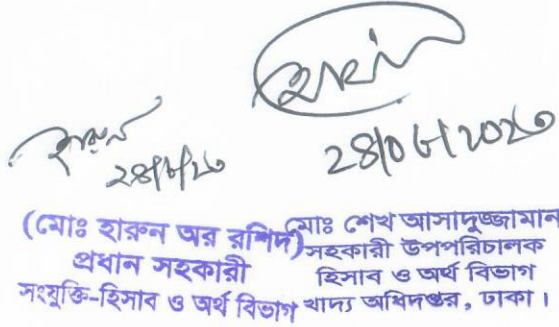 হারুন
(মোঃ হারুন অর রশিদ)
প্রধান সহকারী
সংযুক্তি-হিসাব ও অর্থ বিভাগ
মোঃ শেখ আসাদুজ্জামান
সহকারী উপপরিচালক
হিসাব ও অর্থ বিভাগ
খাদ্য অধিদপ্তর, ঢাকা।